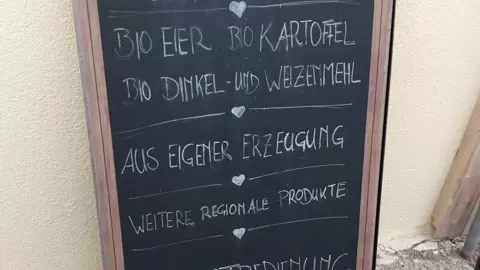 BIO EIER BIO KARTOFFEL
BIO DINKEL- UND WEIZENMEHL
AUS EIGENER ERZEUGUNG
WEITERE REGIONALE PRODUKTE